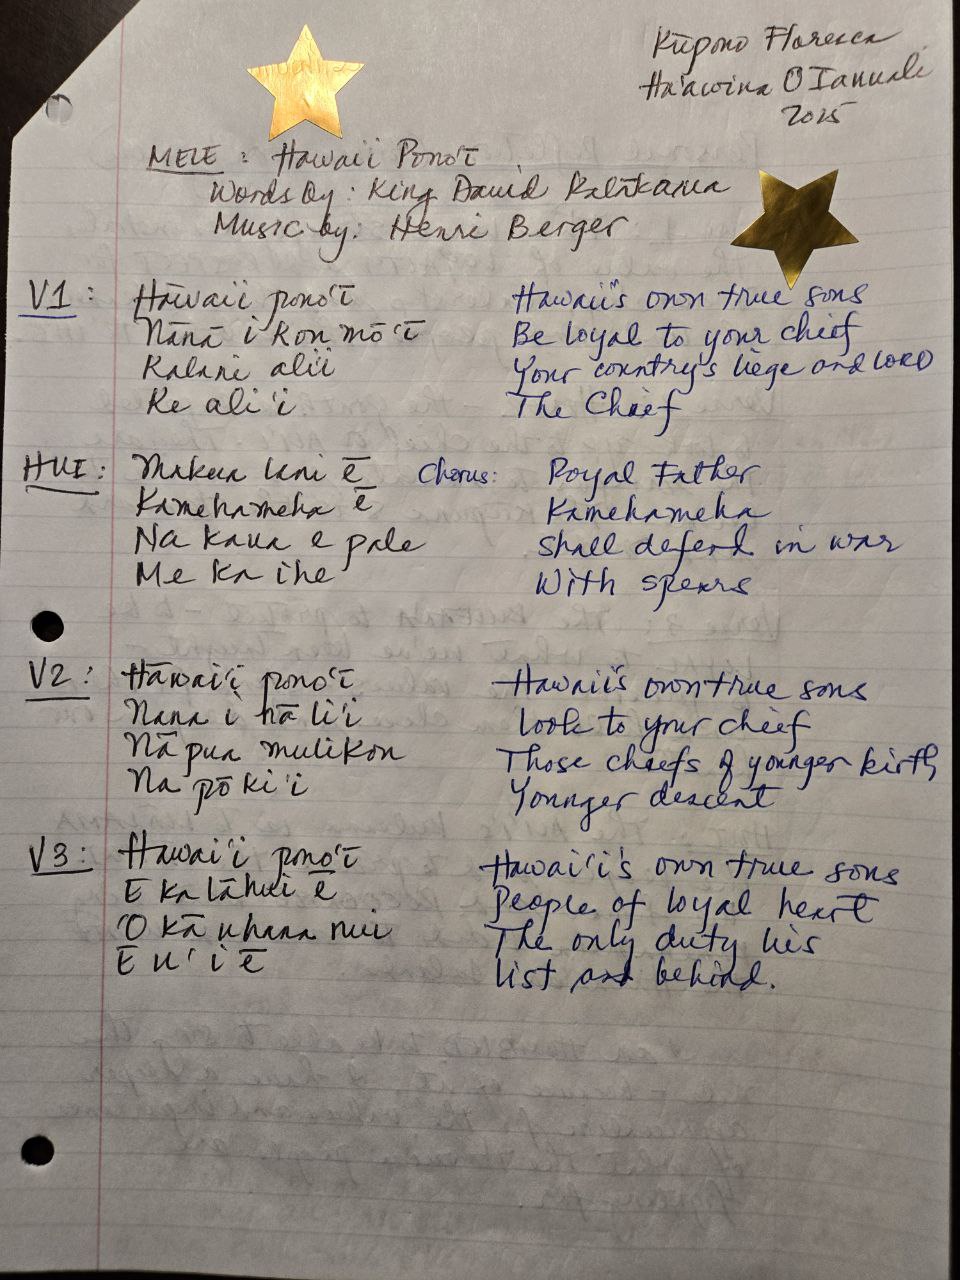 Kūpono Floresca
Ha'awina O Ianuali
2025
MELE : Hawai'i Pono'ī
Words by : King David Kalākaua
Music by: Henri Berger
V1 : Hawai'i pono'ī Hawaii's own true sons
Nānā i kou mō'ī Be loyal to your chief
Kalani ali'i Your country's liege and LORD
Ke ali'i The Chief
HUI : Makua lani ē Chorus: Royal Father
Kamehameha ē Kamehameha
Na kaua e pale Shall defend in war
Me ka ihe With spears
V2 : Hawai'i pono'ī Hawaii's own true sons
Nana i nā li'i Look to your chief
Nā pua muli kou Those chiefs of younger birth
Na pōki'i Younger descent
V3 : Hawai'i pono'ī Hawai'i's own true sons
E ka lāhui ē People of loyal heart
'O kā uhana nui The only duty lies
E u'i ē list and behind.